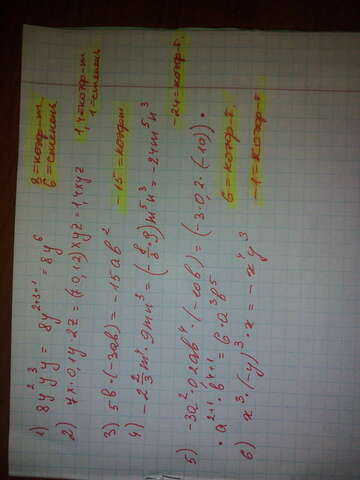 1) 8y²y³y = 8y²⁺³⁺¹ = 8y⁶ 8 = коэф-т. 6 = степень.
2) 7x·0,1y·2z = (7·0,1·2)xyz = 1,4xyz 1,4 = коэф-т 1 = степень
3) 5b·(-3ab) = -15ab² -15 = коэф-т
4) -2 2/3 m⁴·9mn³ = (-8/3·9)m⁵n³ = -24m⁵n³ -24 = коэф-т.
5) -3a²·0,2ab⁴·(-10b) = (-3·0,2·(-10))·
·a²⁺¹·b⁴⁺¹ = 6·a³b⁵ 6 = коэф-т.
6) x³·(-y)³·x = -x⁴y³ -1 = коэф-т.